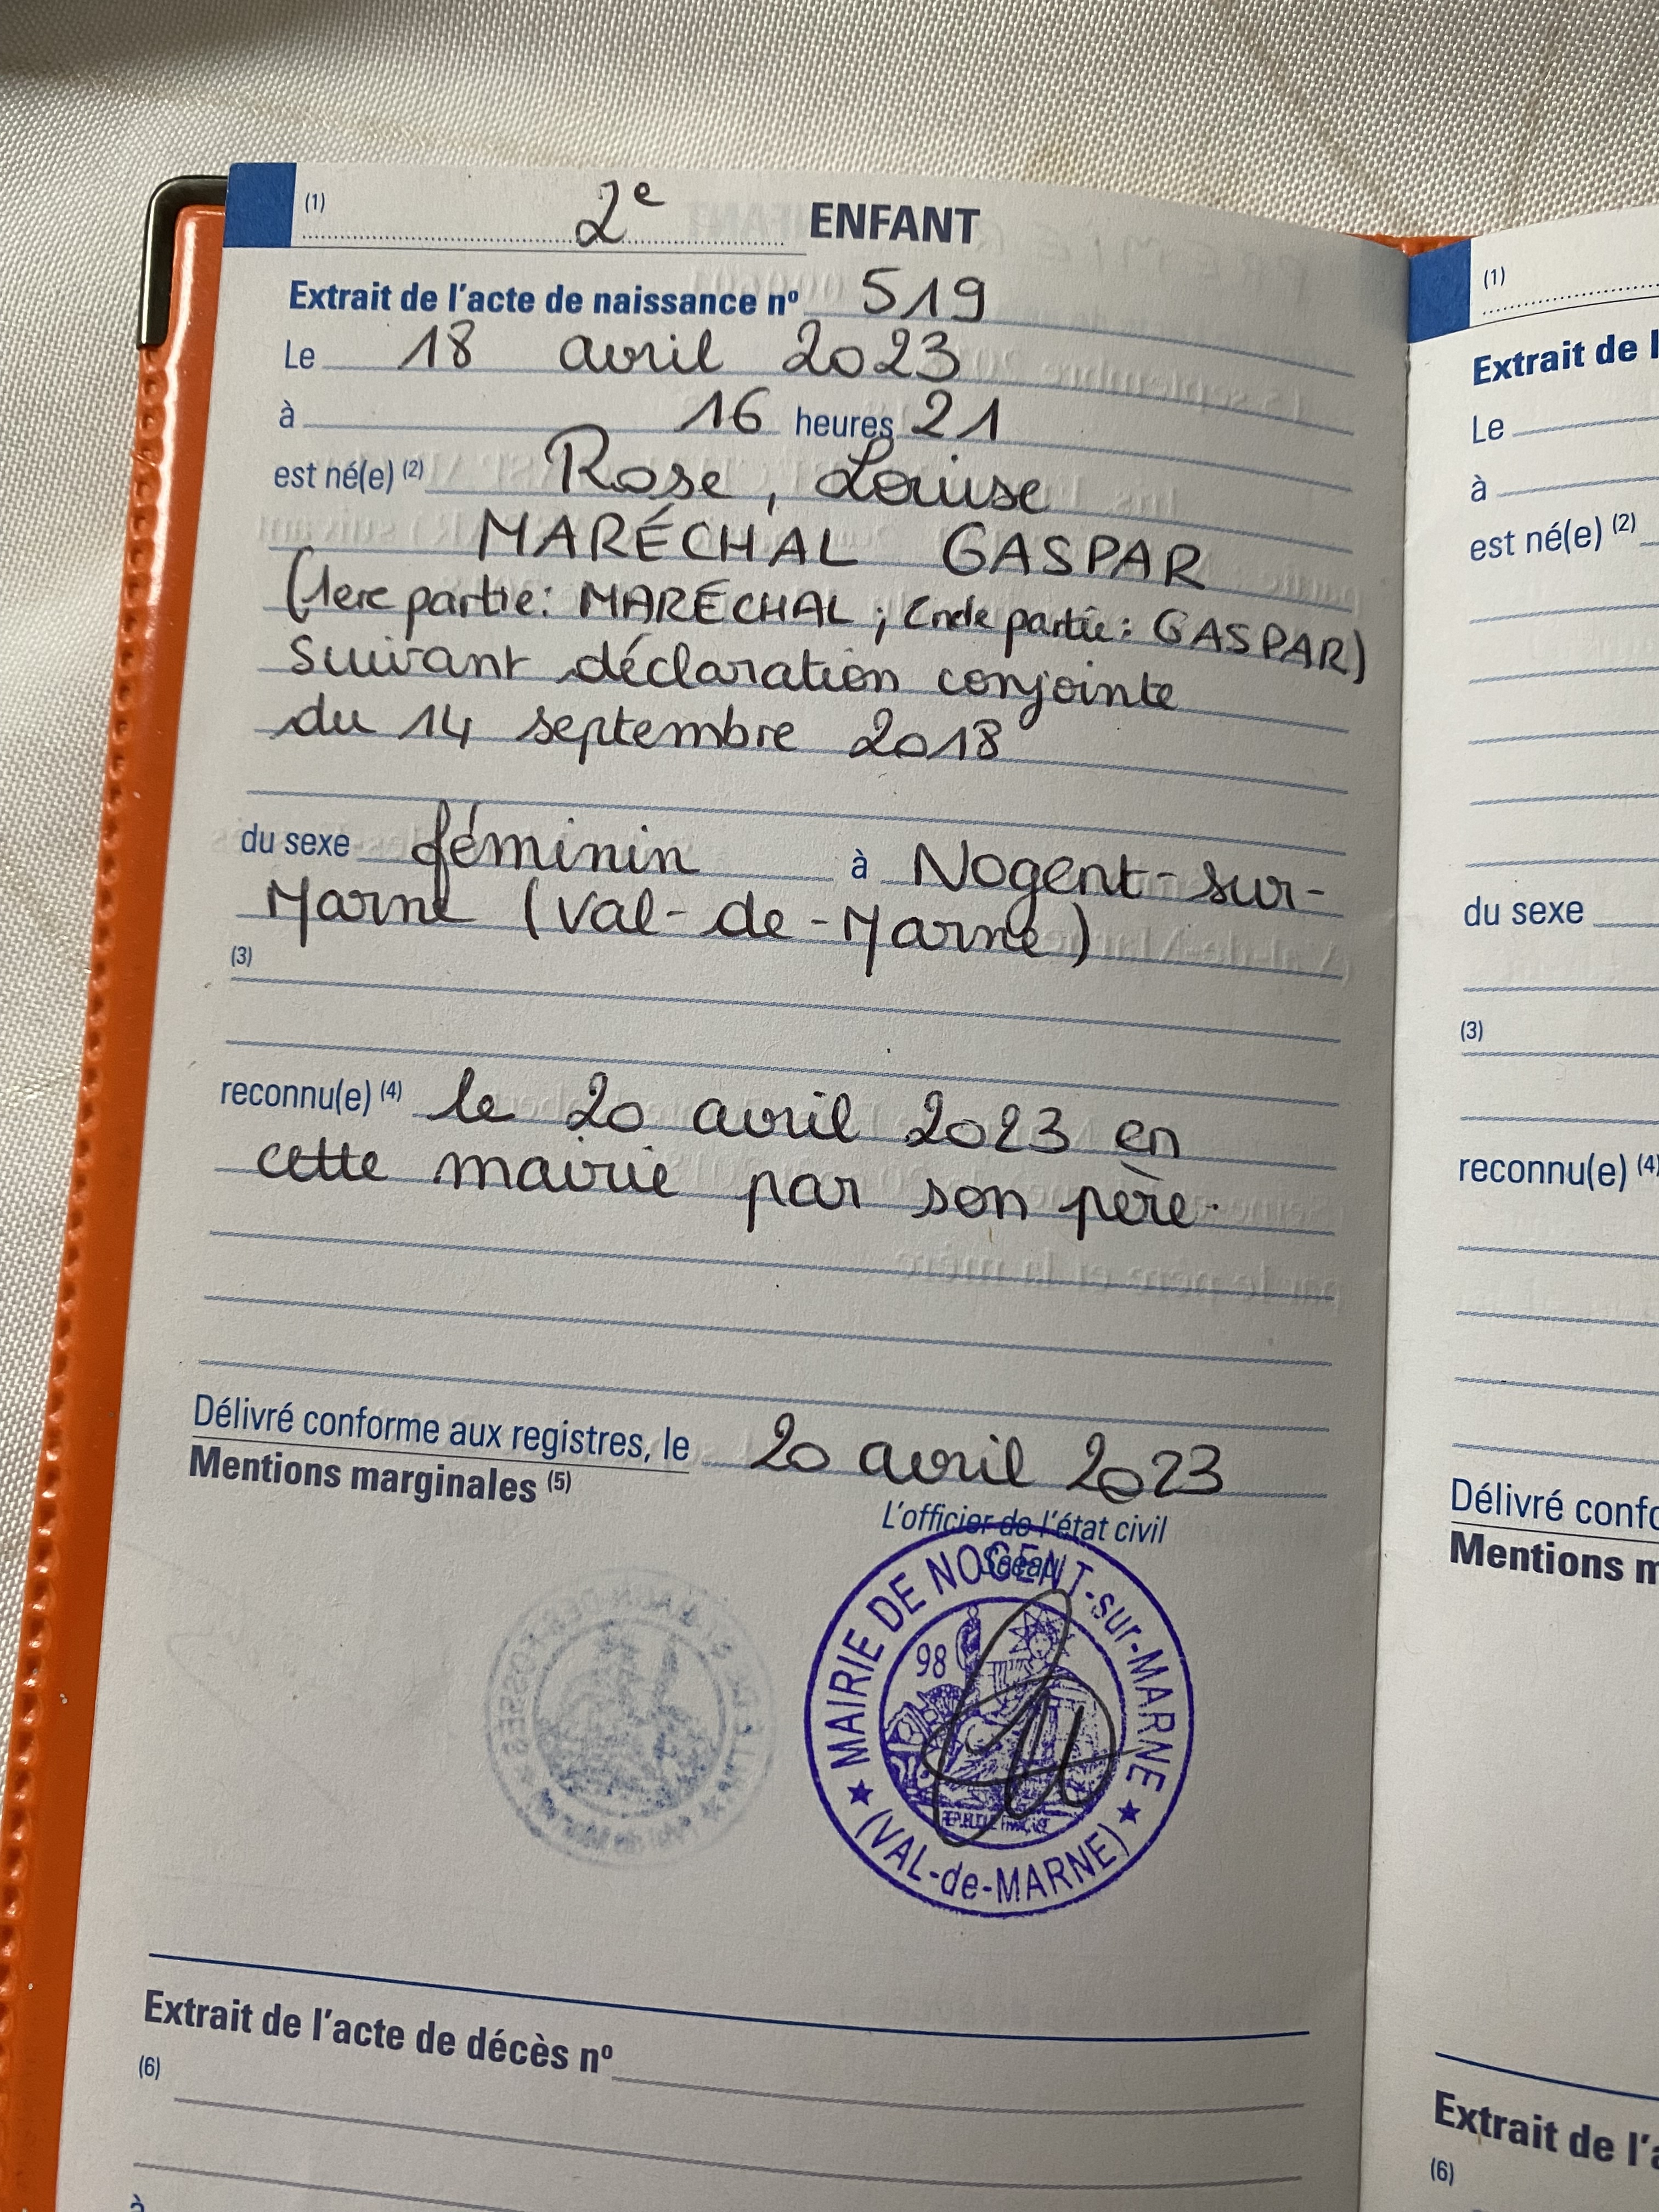 (1) 2e ENFANT
Extrait de l'acte de naissance nº 519
Le 18 avril 2023
à 16 heures 21
est né(e) (2) Rose, Louise
MARÉCHAL GASPAR
(1ere partie: MARÉCHAL; 2nde partie: GASPAR)
suivant déclaration conjointe
du 14 septembre 2018
du sexe féminin à Nogent-sur-
Marne (Val-de-Marne)
(3)
reconnu(e) (4) le 20 avril 2023 en
cette mairie par son père.
Délivré conforme aux registres, le 20 avril 2023
Mentions marginales (5)
L'officier de l'état civil
Sceau
MAIRIE DE NOGENT-sur-MARNE
98
(VAL-de-MARNE)
Extrait de l'acte de décès nº
(6)
à
(1)
Extrait de l
Le
à
est né(e) (2)
du sexe
(3)
reconnu(e) (4)
Délivré confo
Mentions m
Extrait de l'a
(6)